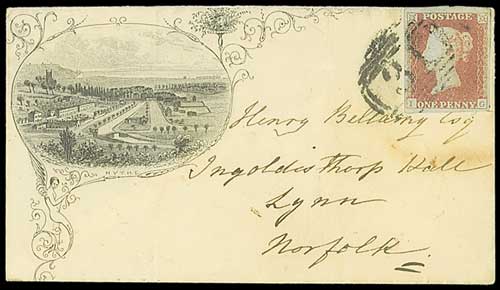 POSTAGE
I G
ONE PENNY
HYTHE
Henry Bellamy Esq
Ingoldisthorp Hall
Lynn
Norfolk.